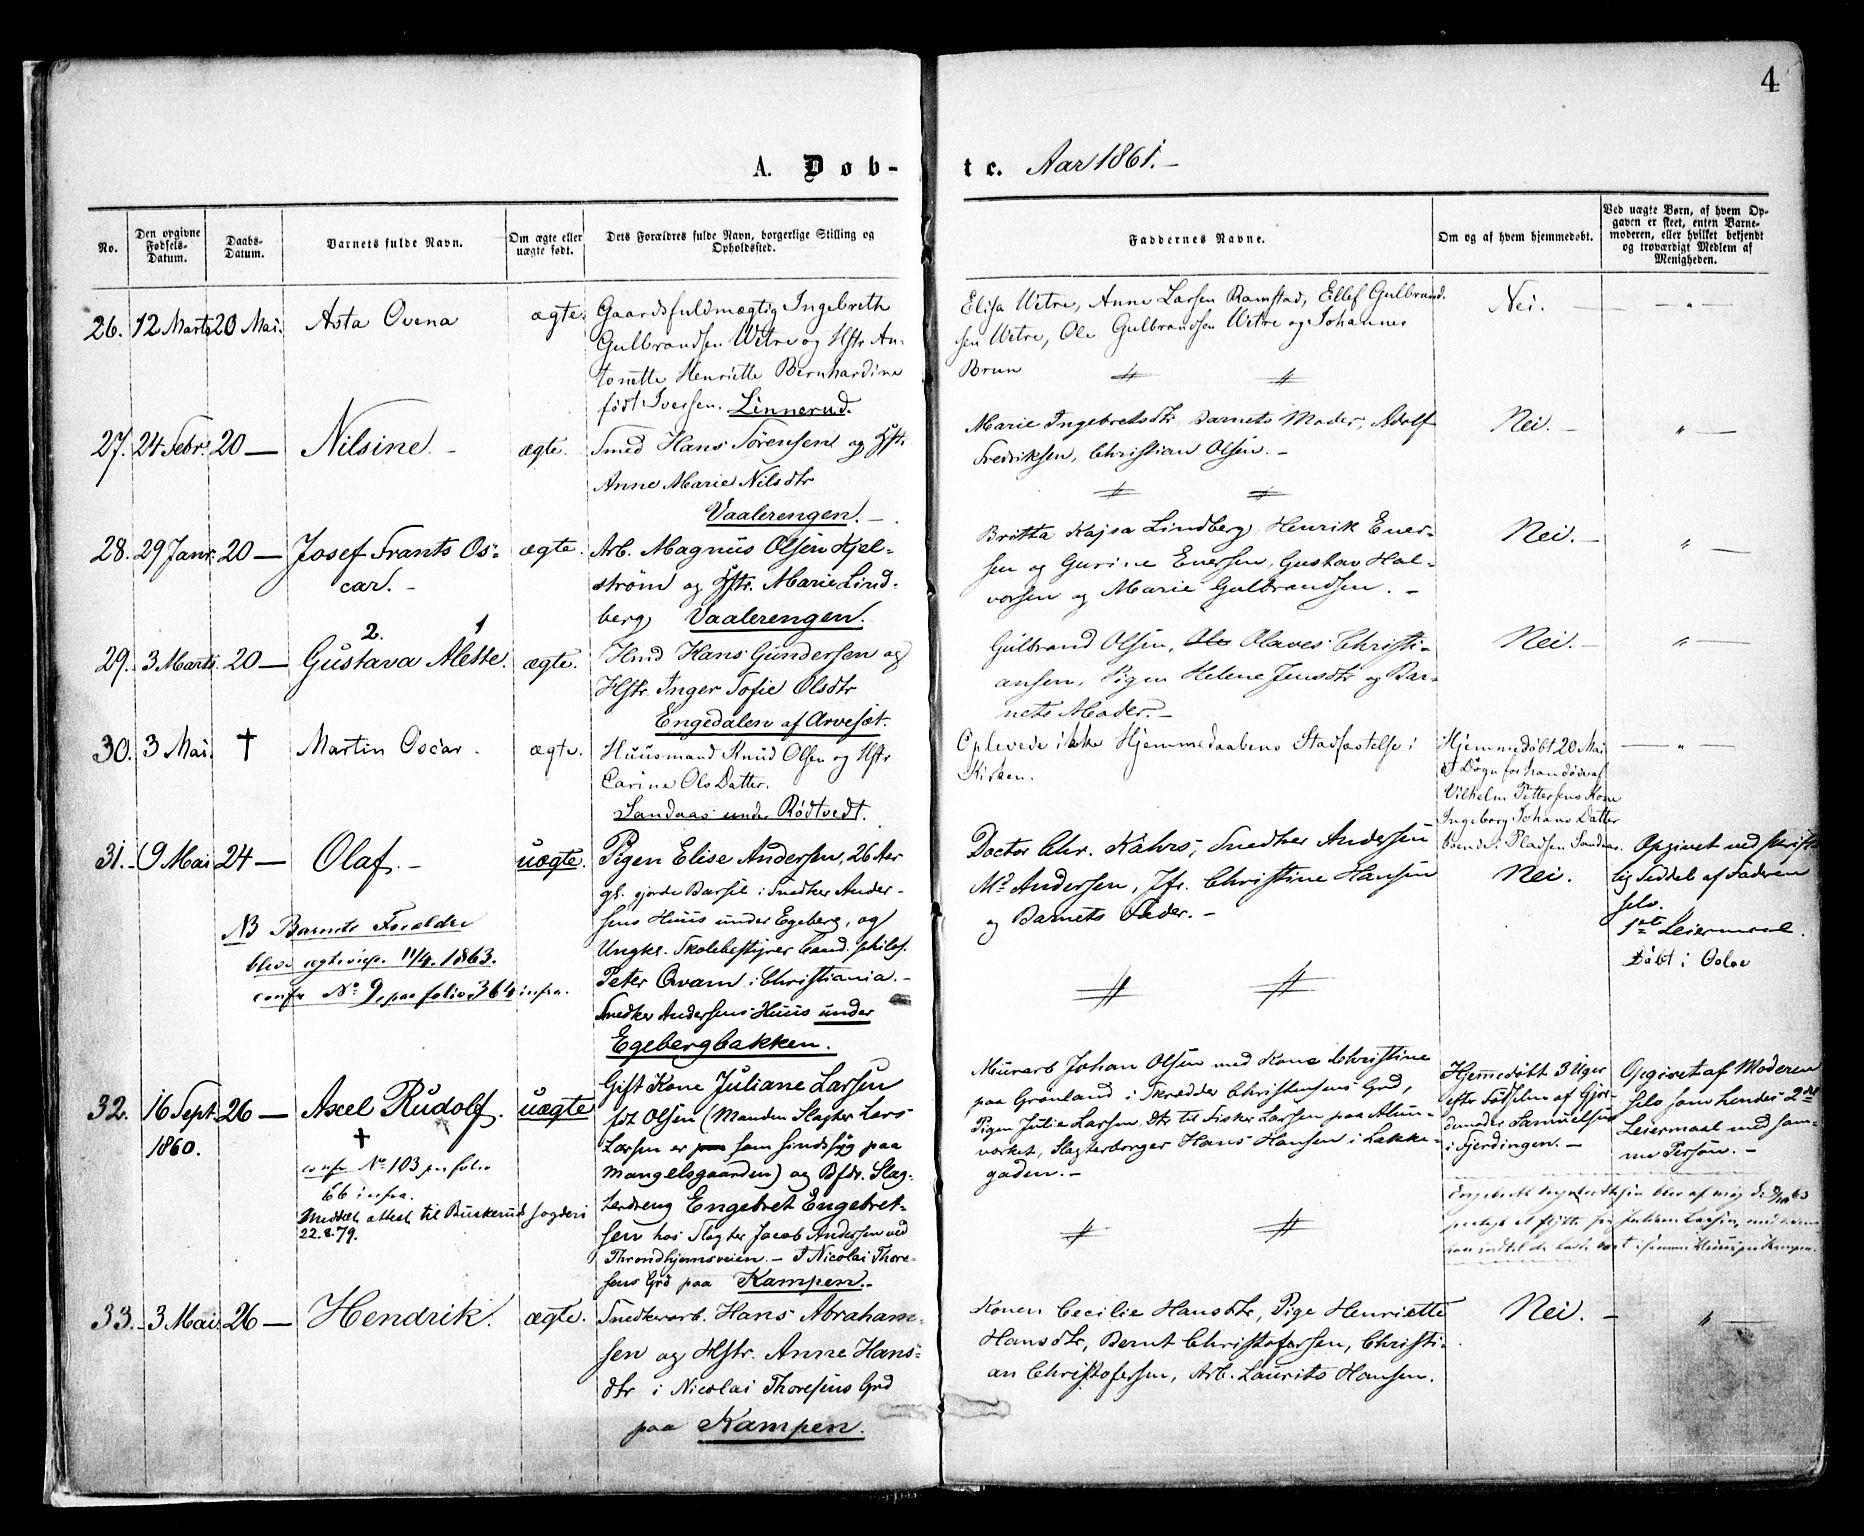 4
A. Døb-
te. Aar 1861.-
No.
Den opgivne Fødsels-Datum.
Daabs-Datum.
Barnets fulde Navn.
Om ægte eller uægte født.
Dets Forældres fulde Navn, borgerlige Stilling og Opholdsted.
Faddernes Navne.
Om og af hvem hjemmedøbt.
Ved uægte Børn, af hvem Op-
gaven er skeet, enten Barne-
moderen, eller hvilket bekjendt
og troværdigt Medlem af
Menigheden.
26. 12 Marts 20 Mai. Asta Ovena ægte.
Gaardsfuldmægtig Ingebreth
Gulbrandsen Wetre og Hstr An-
tonette Henriette Bernhardine
født Iversen. Linnerud.
Elisa Wetre, Anne Larsen Ramstad, Ellef Gulbrand-
sen Wetre, Ole Gulbrandsen Wetre og Johannes
Brun
Nei. — „ —
27. 24 Febr. 20 — Nilsine. - ægte.
Smed Hans Sørensen og Hstr.
Anne Marie Nilsdtr
Vaalerengen. -
Marie Ingebretsdtr. Barnets Moder, Adolf
Fredriksen, Christian Olsen. -
Nei. - „ —
28. 29 Janr. 20 — Josef Frants Os-
car. -
ægte.
Arb. Magnus Olsen Kjel-
strøm og Hstr. Marie Lind-
berg Vaalerengen.
Britta Kajsa Lindberg, Henrik Ener-
sen og Gurine Enersen, Gustav Hal-
vorsen og Marie Gulbrandsen. -
Nei. - „ —
29. 3 Marts 20 — 2. 1
Gustava Alette. ægte.
Hmd Hans Gundersen og
Hstr. Inger Sofie Olsdtr
Engedalen af Arvesæt.
Gulbrand Olsen, Ole Olaves Christi-
ansen, Pigen Helene Jensdtr og Bar-
nets Moder. -
Nei. - „ —
30. 3 Mai. † Martin Oscar. ægte.
Huusmand Knud Olsen og Hstr
Carine Ols Datter.
Sandaas under Rødtvedt.
Oplevede ikke Hjemmedaabens Stadfæstelse i
Kirken.
Hjemmedøbt 20 Mai
Døgn før han døde af
Vilhelm Pettersens Kone
Ingeborg Johans Datter
boende i Pladsen Sandaas.
— „ —
31. 9 Mai 24 — Olaf. - uægte.
NB Barnets Forældre
bleve ægteviep. 11/4. 1863.
confr No 9, paa folio 364 infra.
Pigen Elise Andersen, 26 Aar
gl. gjorde Barsel i Snedker Ander-
sens Huus under Egeberg, og
Ungk. Skolebestyrer Cand. philos.
Peter Qvam i Christiania. -
Snedker Andersens Huus under
Egebergbakken.
Doctor Chr. Kahrs, Snedker Andersen
Md Andersen, Jfr. Christine Hansen
og Barnets Fader. -
Nei.
Opgivet ved skrift-
lig Seddel af Faderen
selv.
1ste Leiermaal.
Døbt i Oslo
32. 16 Sept. 1860. 26 — Axel Rudolf. uægte
†
confr No 103 paa folio
66 infra.
Meddelt attest til Buskerud fogderi
22.8.79.
Gift Kone Juliane Larsen
født Olsen (Manden Slagter Lars
Larsen er som sindssyg paa
Mangelsgaarden) og Bfdr. Slag-
terdreng Engebret Engebret-
sen hos Slagter Jacob Andersen ved
Throndhjemsveien. - I Nicolai Thore-
sens Grd paa Kampen. -
Murarb Johan Olsen med Kone Christine
paa Grønland i Skrædder Christensens Grd,
Pigen Julie Larsen, dtr til Fisker Larsen paa Alun-
værket, Slagterborger Hans Hansen i Lakke-
gaden. -
Hjemedøbt 3 Uger
efter Fødselen af Gjor-
demoder Samuelsen
i Fjerdingen. -
Opgivet af Moderen
selv som hendes 2det
Leiermaal med sam-
me Person. -
33. 3 Mai 26 — Hendrik. ægte.
Snedkerarb. Hans Abraham-
sen og Hstr. Anne Hans-
dtr i Nicolai Thoresens Grd
paa Kampen.
Konen Cecilie Hansdtr, Pige Henriette
Hansdtr, Bernt Christofersen, Christi-
an Christofersen, Arb. Laurits Hansen.
Nei. - „ —